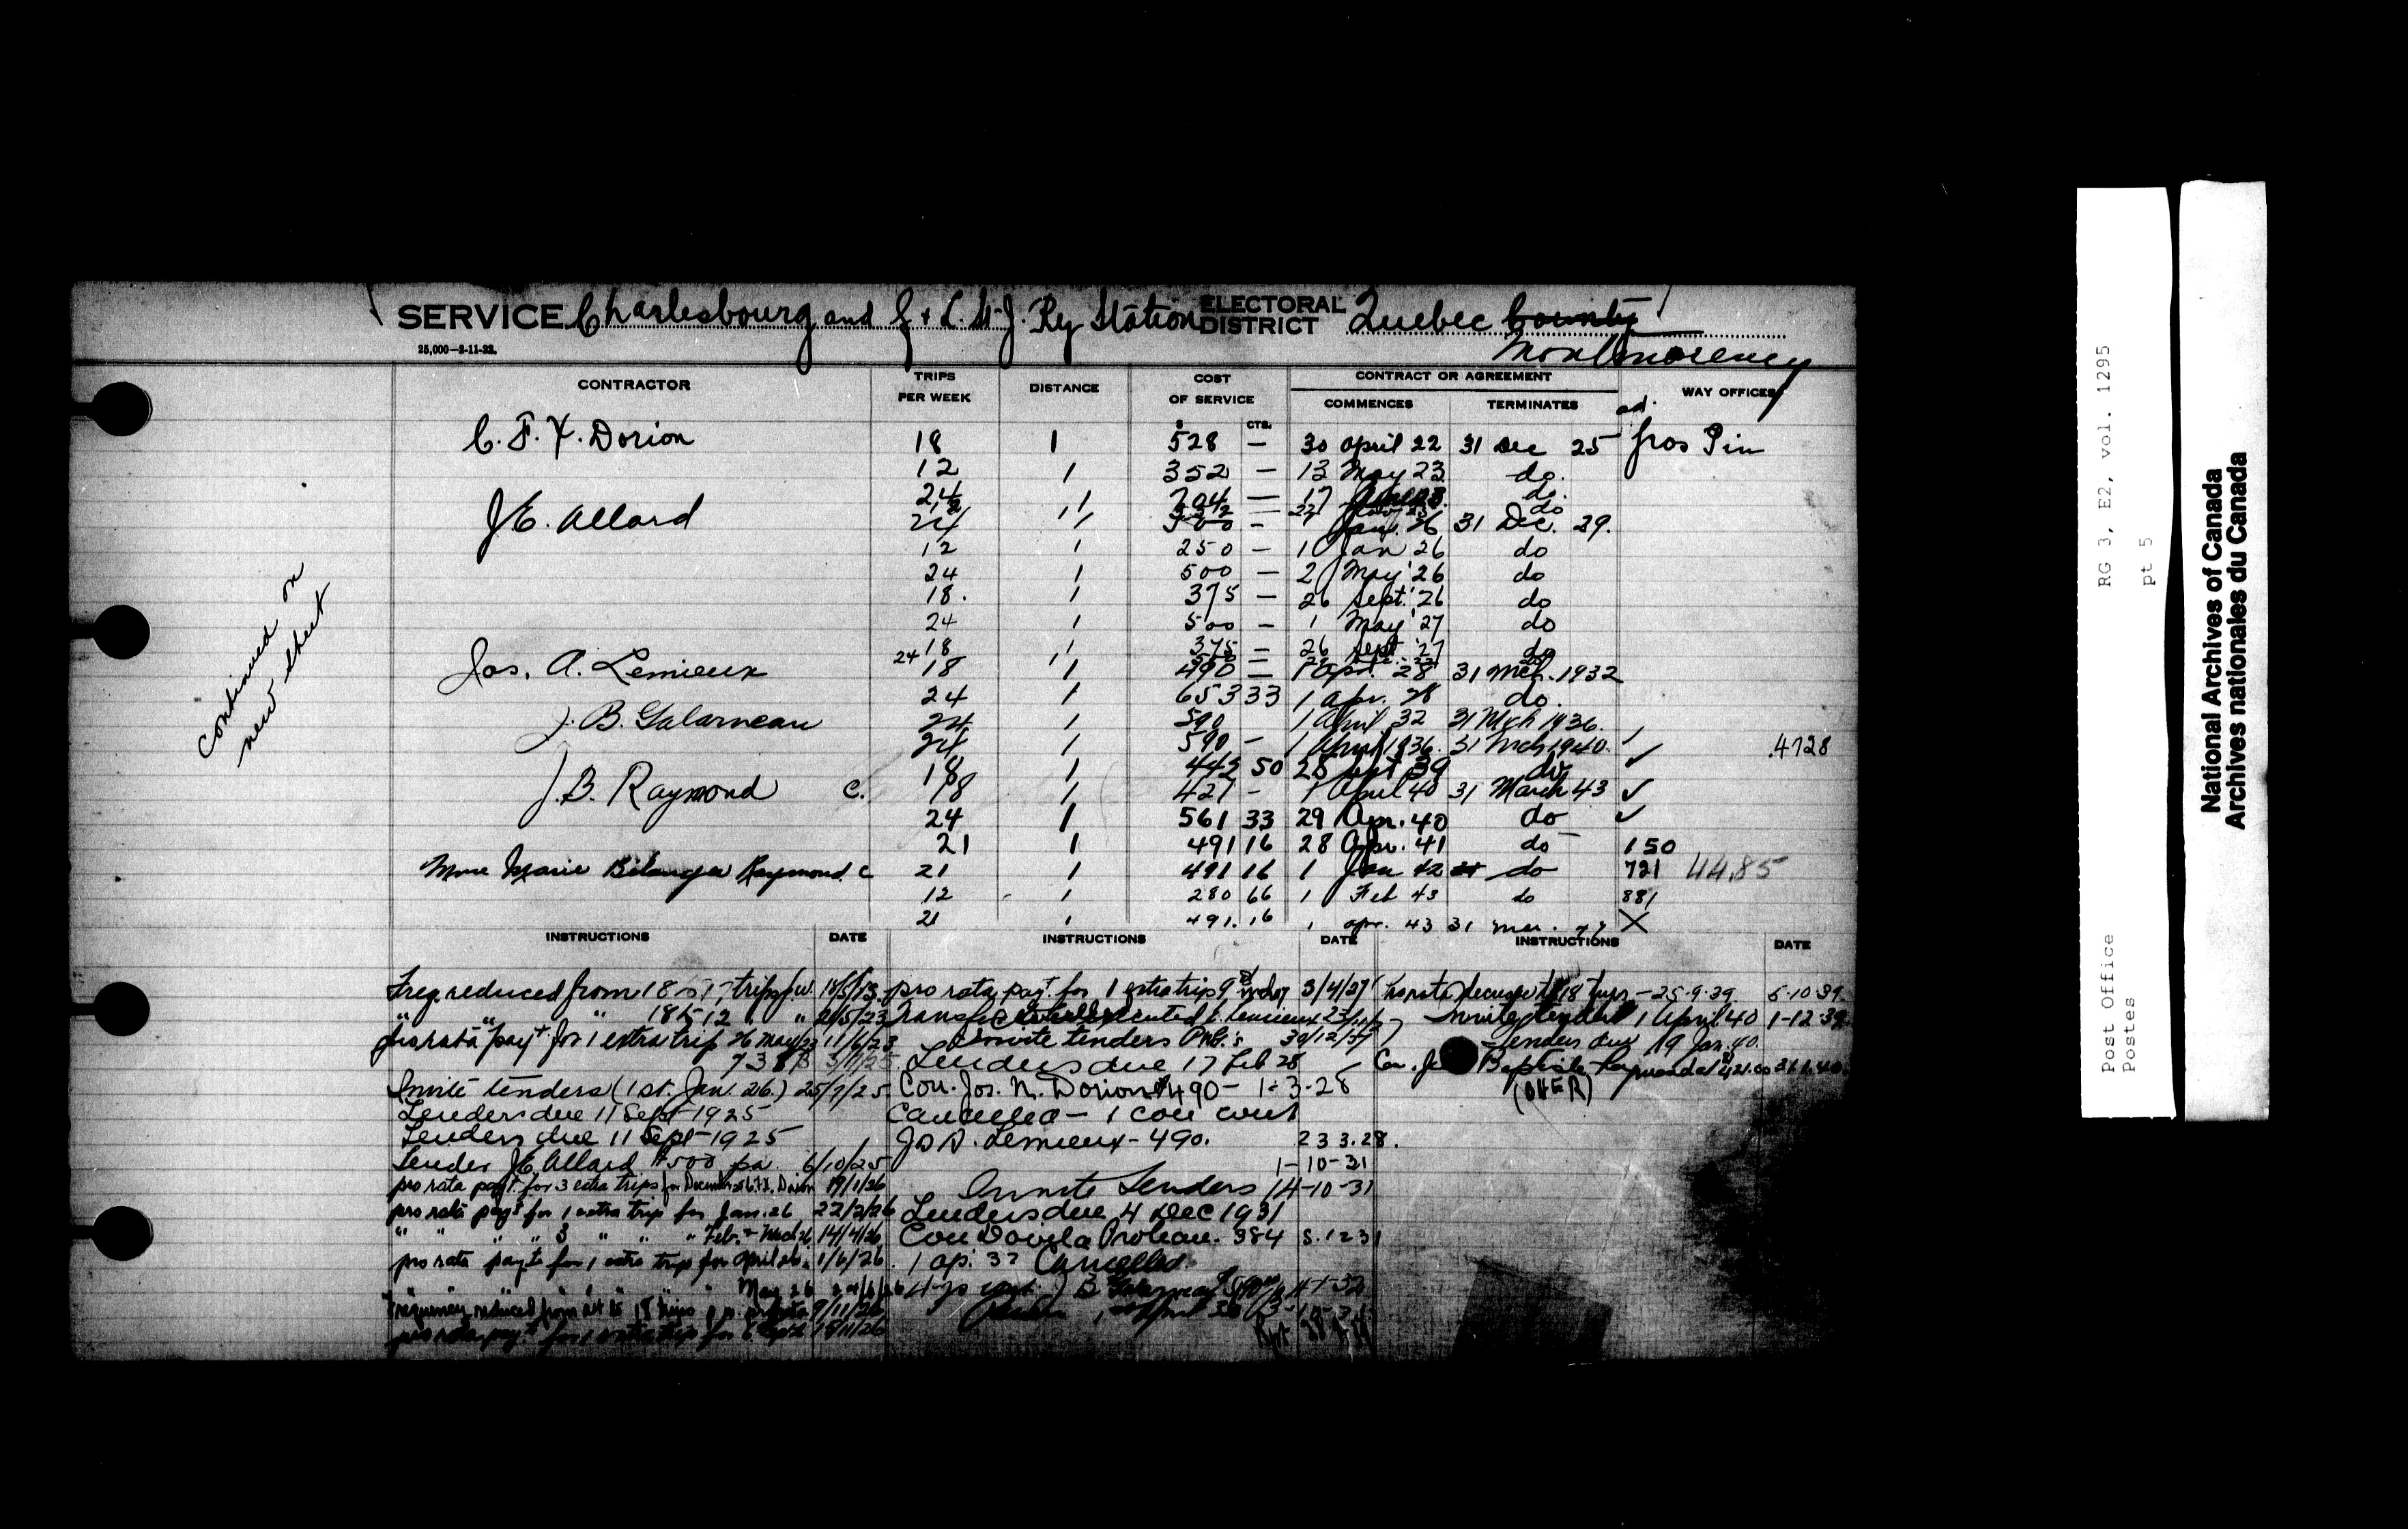 SERVICE Charlesbourg and Q & L. St. J. Ry Station ELECTORAL DISTRICT Quebec County
Montmorency
25,000—2-11-22.
CONTRACTOR TRIPS PER WEEK DISTANCE COST OF SERVICE CONTRACT OR AGREEMENT WAY OFFICES
COMMENCES TERMINATES
$ CTS. ad.
C. F. X. Dorion 18 1 528 — 30 April 22 31 Dec 25 Gros Pin
12 1 352 — 13 May 23 do.
24 1 704 — 17 do.
do
J.E. Allard 24 1 500 — Jan. 26 31 Dec. 29.
12 1 250 — 1 Jan 26 do
24 1 500 — 2 May '26 do
18. 1 375 — 26 Sept. '26 do
24 1 500 — 1 May '27 do
18 1 375 — 26 Sept '27 do
24
Jos. A. Lemieux 18 1 490 — 1 Apr. 28 31 Mch. 1932
24 1 653 33 1 Apr. 28 do.
J. B. Galarneau 24 1 590 1 April 32 31 Mch 1936.
24 1 590 — 1 April 1936. 31 Mch 1940. ✓ .4728
18 1 442 50 28 Sept 39 do ✓
J. B. Raymond C. 18 1 421 — 1 April 40 31 March 43 ✓
24 1 561 33 29 Apr. 40 do ✓
21 1 491 16 28 Apr. 41 do 150
Mme Marie Belanger Raymond. C 21 1 491 16 1 Jan 42 do 721 4485
12 1 280 66 1 Feb 43 do 881
21 1 491.16 1 apr. 43 31 mar. X
continued on
new sheet
INSTRUCTIONS DATE INSTRUCTIONS DATE INSTRUCTIONS DATE
Freq. reduced from 18 to 17 trips p.w.
" " " 18 to 12 " " 2/5/23
pro rata pay't for 1 extra trip 26 May/23 11/6/23
Invite tenders (1st. Jan. 26.) 25/7/25
Tenders due 11 Sept-1925
Tenders due 11 Sept-1925
Tender J.E. Allard $500 pa. 6/10/25
pro rata pay't for 3 extra trips for December 25 to F.X. Dorion 19/1/26
pro rata pay't for 1 extra trip for Jan. 26 22/2/26
" " " " 3 " " " Feb. + March 26 14/4/26
pro rata pay't for 1 extra trip for April 26. 1/6/26.
May 26
Frequency reduced from 24 to 18 trips p.w. 9/11/26
pro rata pay't for 1 extra trip for Sept 18/11/26
pro rata pay't for 1 extra trip 3/4/27
Transfer
Invite tenders 30/12/27
Tenders due 17 Feb 28
Con. Jos. N. Dorion $490 — 1-3-28
Cancelled —
Jos A. Lemieux - 490. 23 3.28.
1-10-31
Invite Tenders 14-10-31
Tenders due 4 Dec 1931
Con Dovila Proteau. 384
1 ap. 32 Cancelled.
pro rata decrease to 18 trips — 25.9.39. 5.10.39.
Invite tenders 1 April 40 1-12-39.
Tenders due 19 Jan. 40.
Con. J. Baptiste Raymond at 421.00
(OVER)
RG 3, E2, vol. 1295
pt 5
Post Office
Postes
National Archives of Canada
Archives nationales du Canada